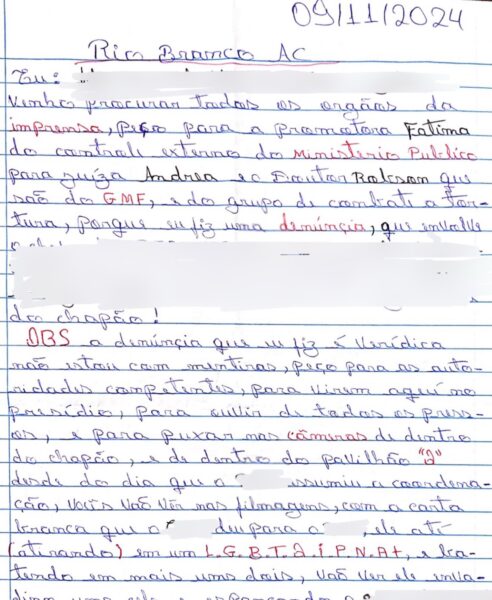 09/11/2024
Rio Branco AC
Eu:
Venho procurar todos os orgãos da
imprensa, peço para a promotora Fatima
do controle externo do Ministerio Publico
para juíza Andrea e o Doutor Robson que
são do GMF, e do grupo de combate a tor-
tura, porque eu fiz uma denúncia, que envolve
do chapão!
OBS a denúncia que eu fiz é verídica
não estou com mentiras, peço para as auto-
ridades competentes, para virem aqui no
presídio, para ouvir de todos os press-
os, e para puxar nas câmeras de dentro
do chapão, e de dentro do pavilhão "J"
desde do dia que o assumiu a coordena-
ção, vocês vão ver nas filmagens, com a carta
branca que o deu para o, ele até
(atirando) em um L.G.B.T.Q.I.P.N.A+, e ba-
tendo em mais uns dois, vão ver ele inva-